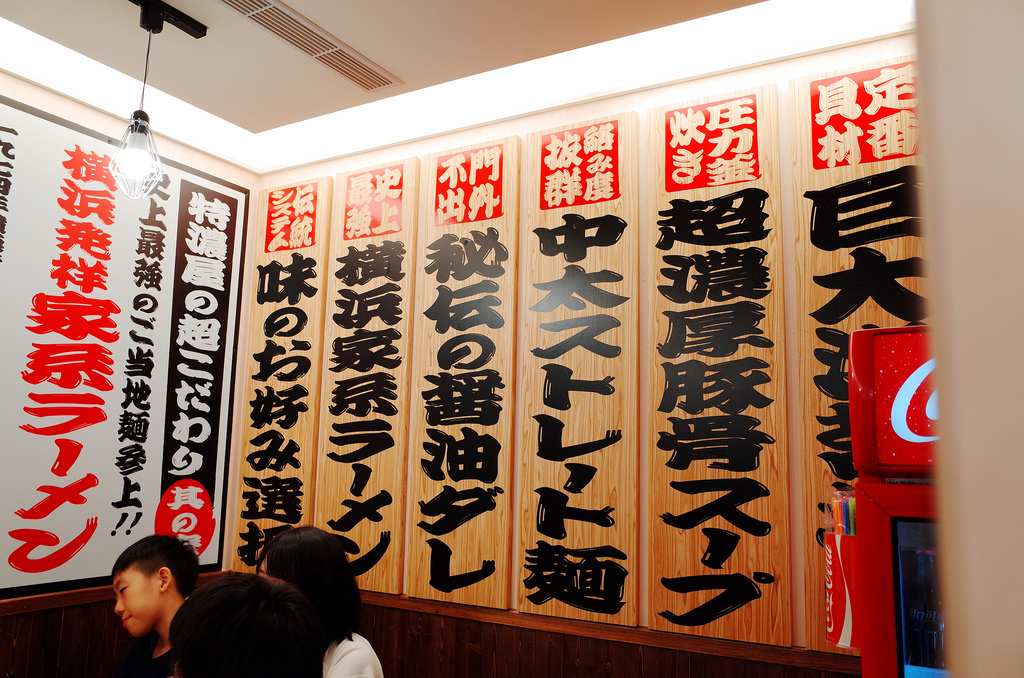 定番
具材
巨大
圧力釜
炊き
超濃厚豚骨スープ
絡み度
抜群
中太ストレート麺
門外
不出
秘伝の醤油ダレ
史上
最強
横浜家系ラーメン
伝統
システム
味のお好み選択
特濃屋の超こだわり
其の
史上最強のご当地麺参上!!
横浜発祥家系ラーメン
一九七四年
Coca-Cola